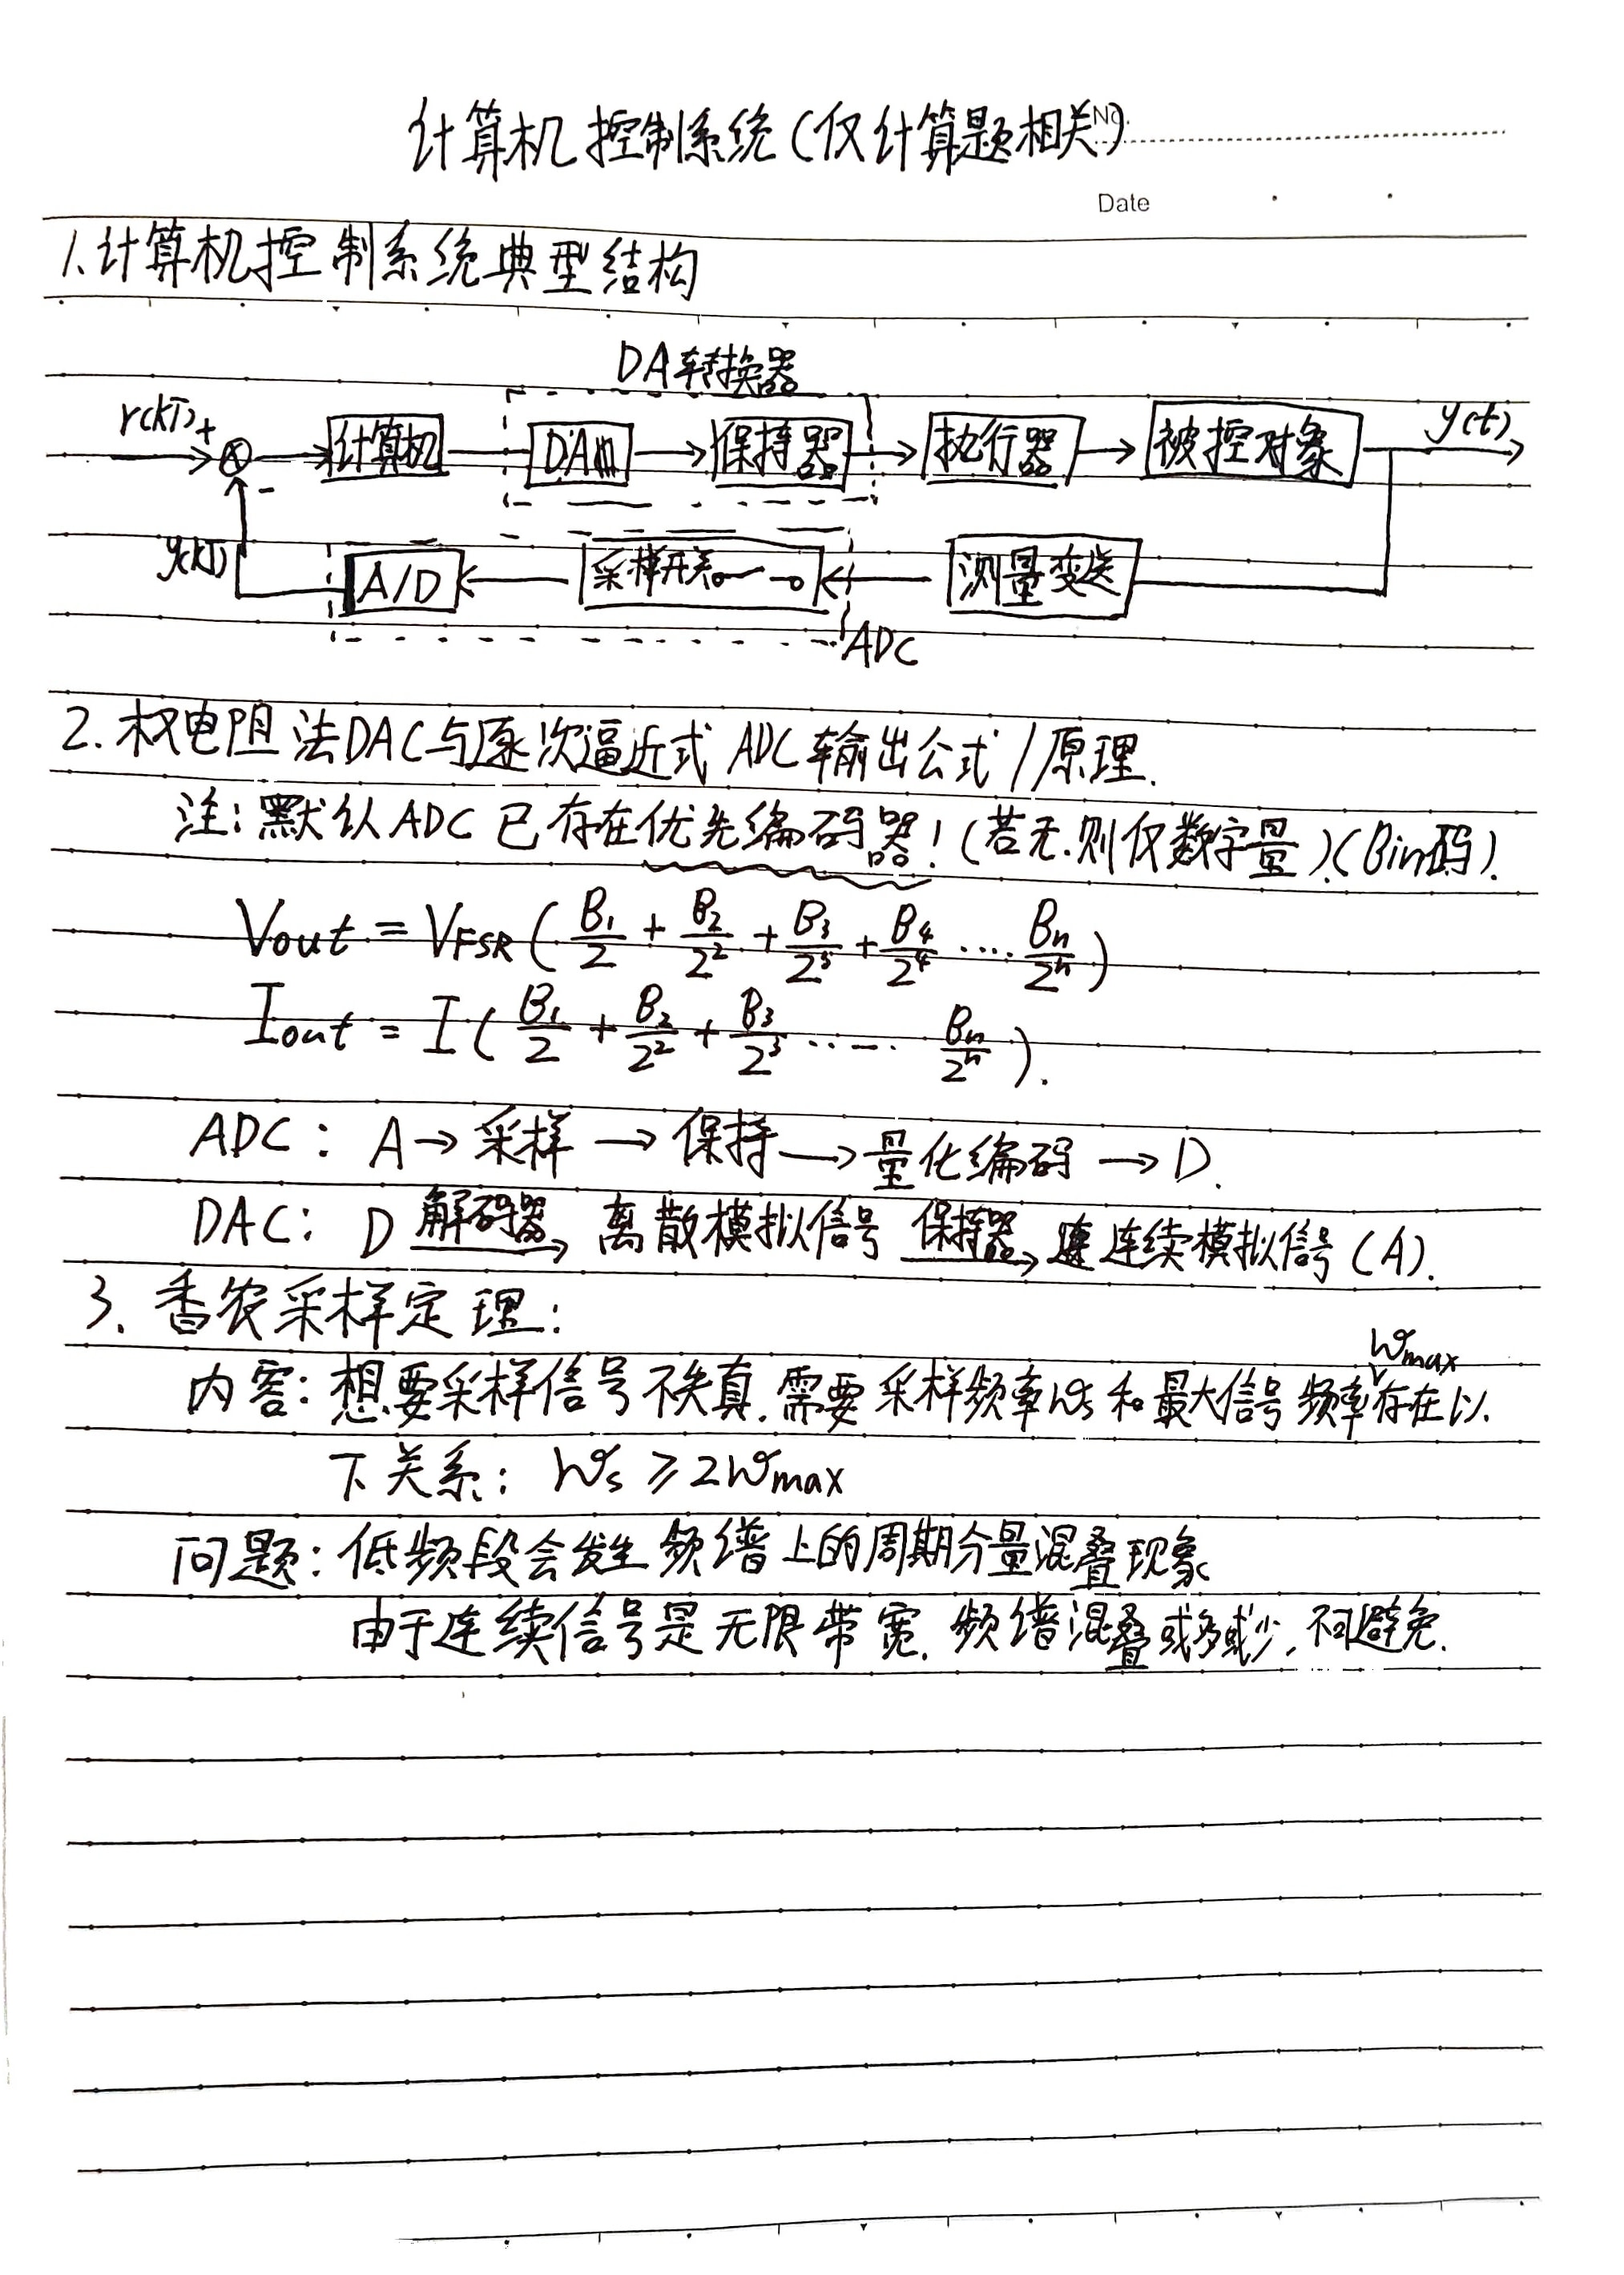 计算机控制系统(仅计算题相关)
No.
Date
1.计算机控制系统典型结构
DA转换器
r(kT) + 计算机 D/A 保持器 执行器 被控对象 y(t)
-
y(kT) A/D 采样开关 测量变送
ADC
2.权电阻法DAC与逐次逼近式ADC输出公式/原理.
注:默认ADC已存在优先编码器!(若无.则仅数字量)(Bin码).
Vout = VFSR ( B₁/2 + B₂/2² + B₃/2³ + B₄/2⁴ .... Bn/2ⁿ )
Iout = I ( B₁/2 + B₂/2² + B₃/2³ ..... Bn/2ⁿ ).
ADC: A → 采样 → 保持 → 量化编码 → D.
DAC: D 解码器→ 离散模拟信号 保持器→ 连续模拟信号(A).
3.香农采样定理:
内容:想要采样信号不失真.需要采样频率ωs和最大信号频率ωmax存在以
下关系: ωs ≥ 2ωmax
问题:低频段会发生频谱上的周期分量混叠现象
由于连续信号是无限带宽.频谱混叠或多或少,不可避免.